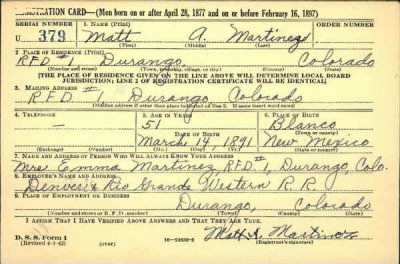 REGISTRATION CARD—(Men born on or after April 28, 1877 and on or before February 16, 1897)
SERIAL NUMBER 1. NAME (Print) ORDER NUMBER
U 379 Matt A. Martinez
(First) (Middle) (Last)
2. PLACE OF RESIDENCE (Print)
R.F.D #1 Durango, Colorado
(Number and street) (Town, township, village, or city) (County) (State)
[THE PLACE OF RESIDENCE GIVEN ON THE LINE ABOVE WILL DETERMINE LOCAL BOARD
JURISDICTION; LINE 2 OF REGISTRATION CERTIFICATE WILL BE IDENTICAL]
3. MAILING ADDRESS
R.F.D. 1 Durango, Colorado
(Mailing address if other than place indicated on line 2. If same insert word same)
4. TELEPHONE 5. AGE IN YEARS 6. PLACE OF BIRTH
— 51 Blanco
DATE OF BIRTH (Town or county)
March 14, 1891 New Mexico
(Exchange) (Number) (Mo.) (Day) (Yr.) (State or country)
7. NAME AND ADDRESS OF PERSON WHO WILL ALWAYS KNOW YOUR ADDRESS
Mrs. Emma Martinez, R.F.D. #1, Durango, Colo.
8. EMPLOYER'S NAME AND ADDRESS
Denver & Rio Grande Western R.R.
9. PLACE OF EMPLOYMENT OR BUSINESS
Durango, Colorado
(Number and street or R. F. D. number) (Town) (County) (State)
I AFFIRM THAT I HAVE VERIFIED ABOVE ANSWERS AND THAT THEY ARE TRUE.
D. S. S. Form 1
(Revised 4-1-42) Matt A. Martinez
(Registrant's signature)